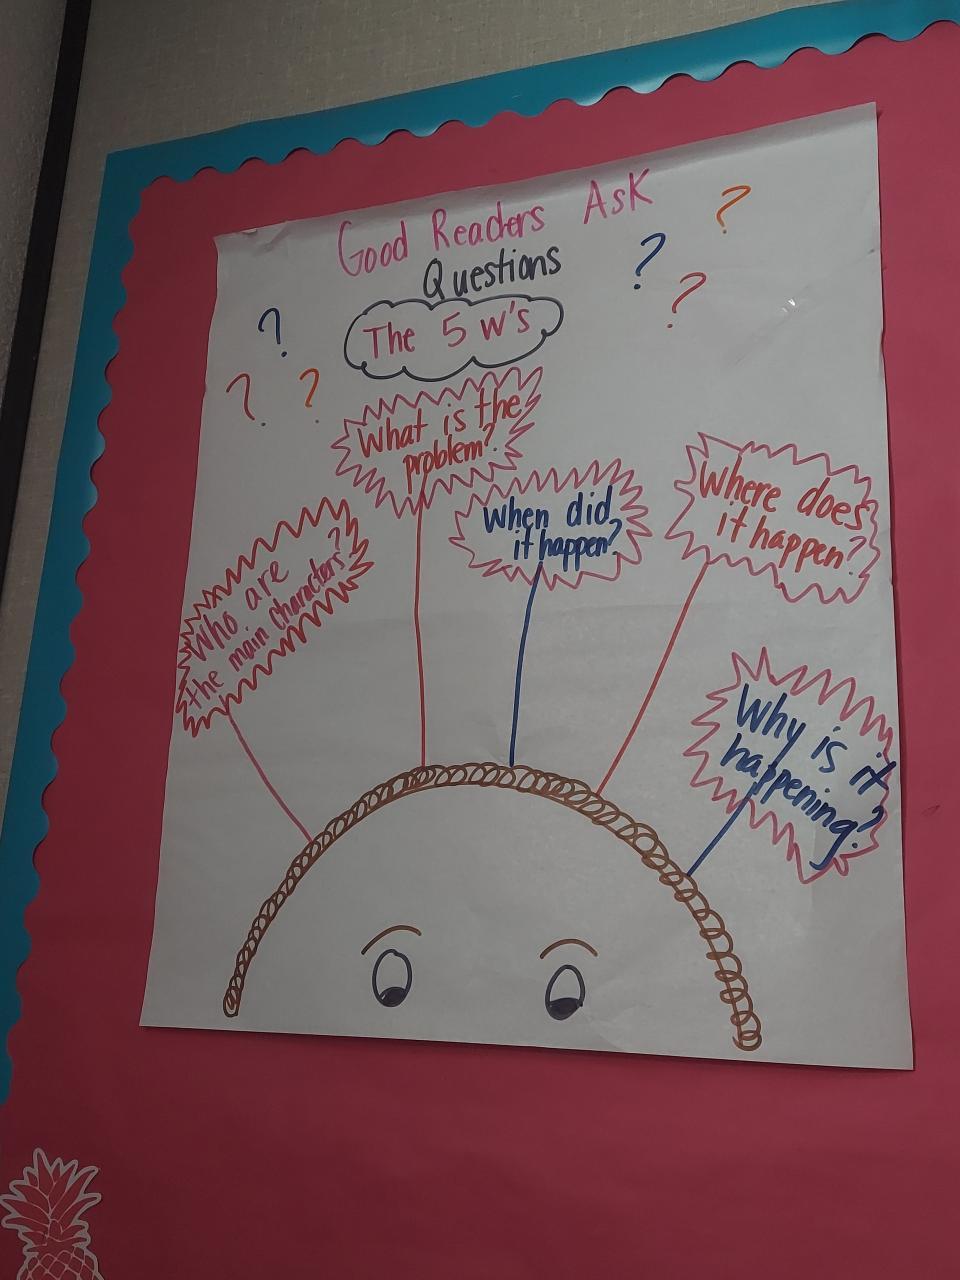 Good Readers Ask
Questions
The 5 w's
?
?
?
?
?
?
What is the
problem?
When did
it happen?
Where does
it happen?
Who are
the main characters?
Why is it
happening?